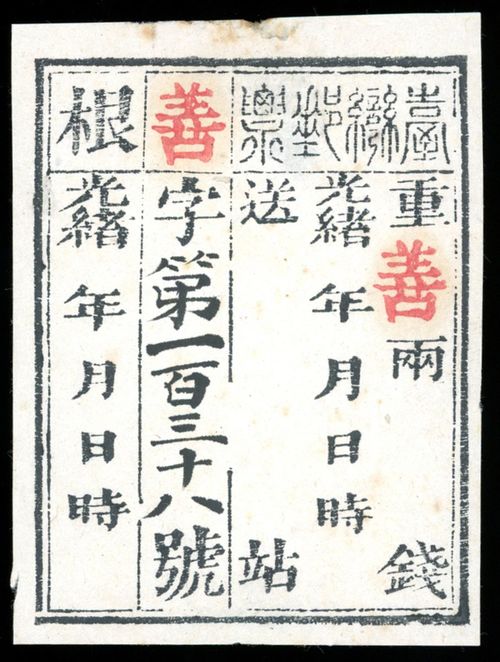 臺灣郵票
重善兩錢
光緒年月日時
送站
善字第一百三十八號
根
光緒年月日時